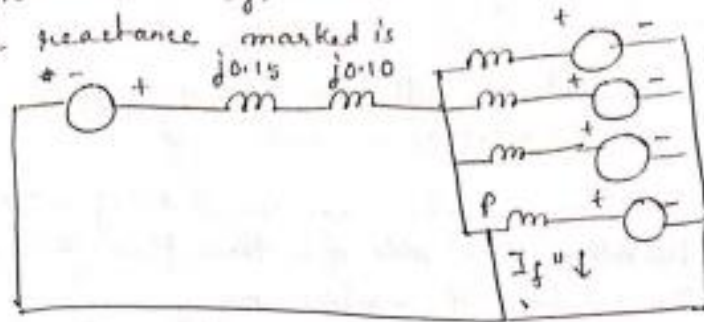 reactance marked is
j0.15 j0.10
* - +
+ -
+ -
+ -
P + -
If"↓